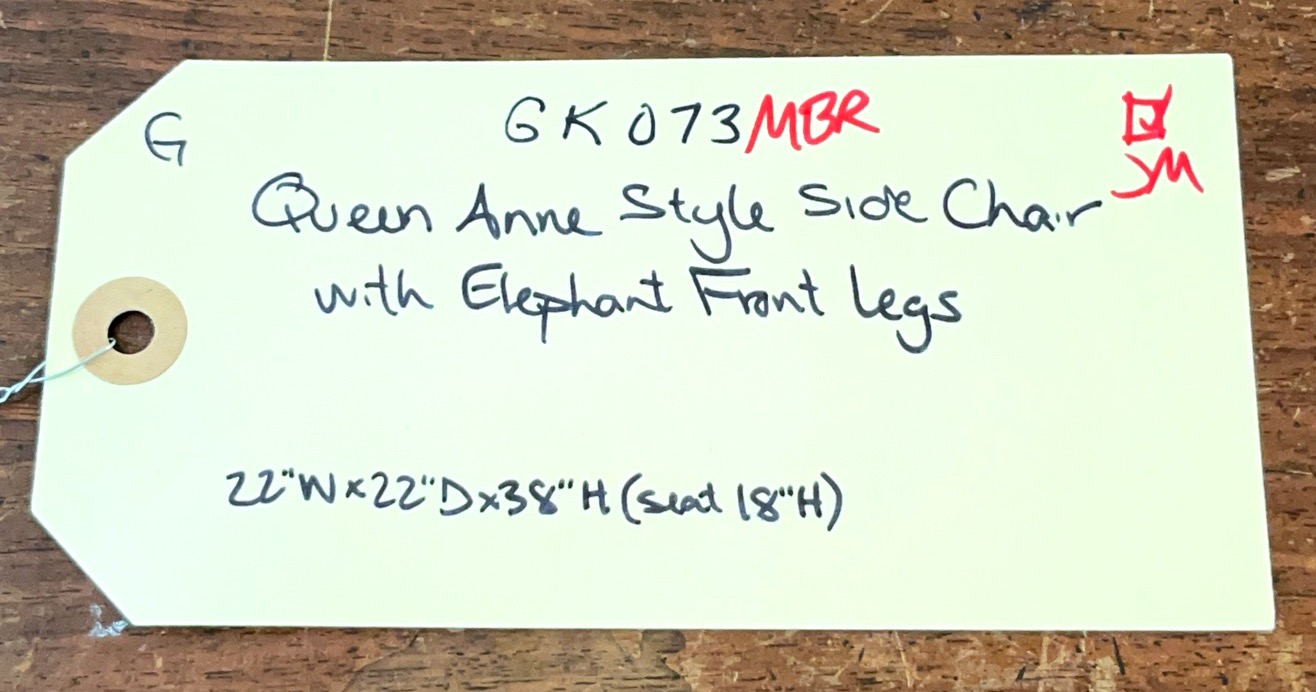 G
GK073 MBR
☑
JM
Queen Anne Style Side Chair
with Elephant Front Legs
22"W x 22"D x 38"H (seat 18"H)